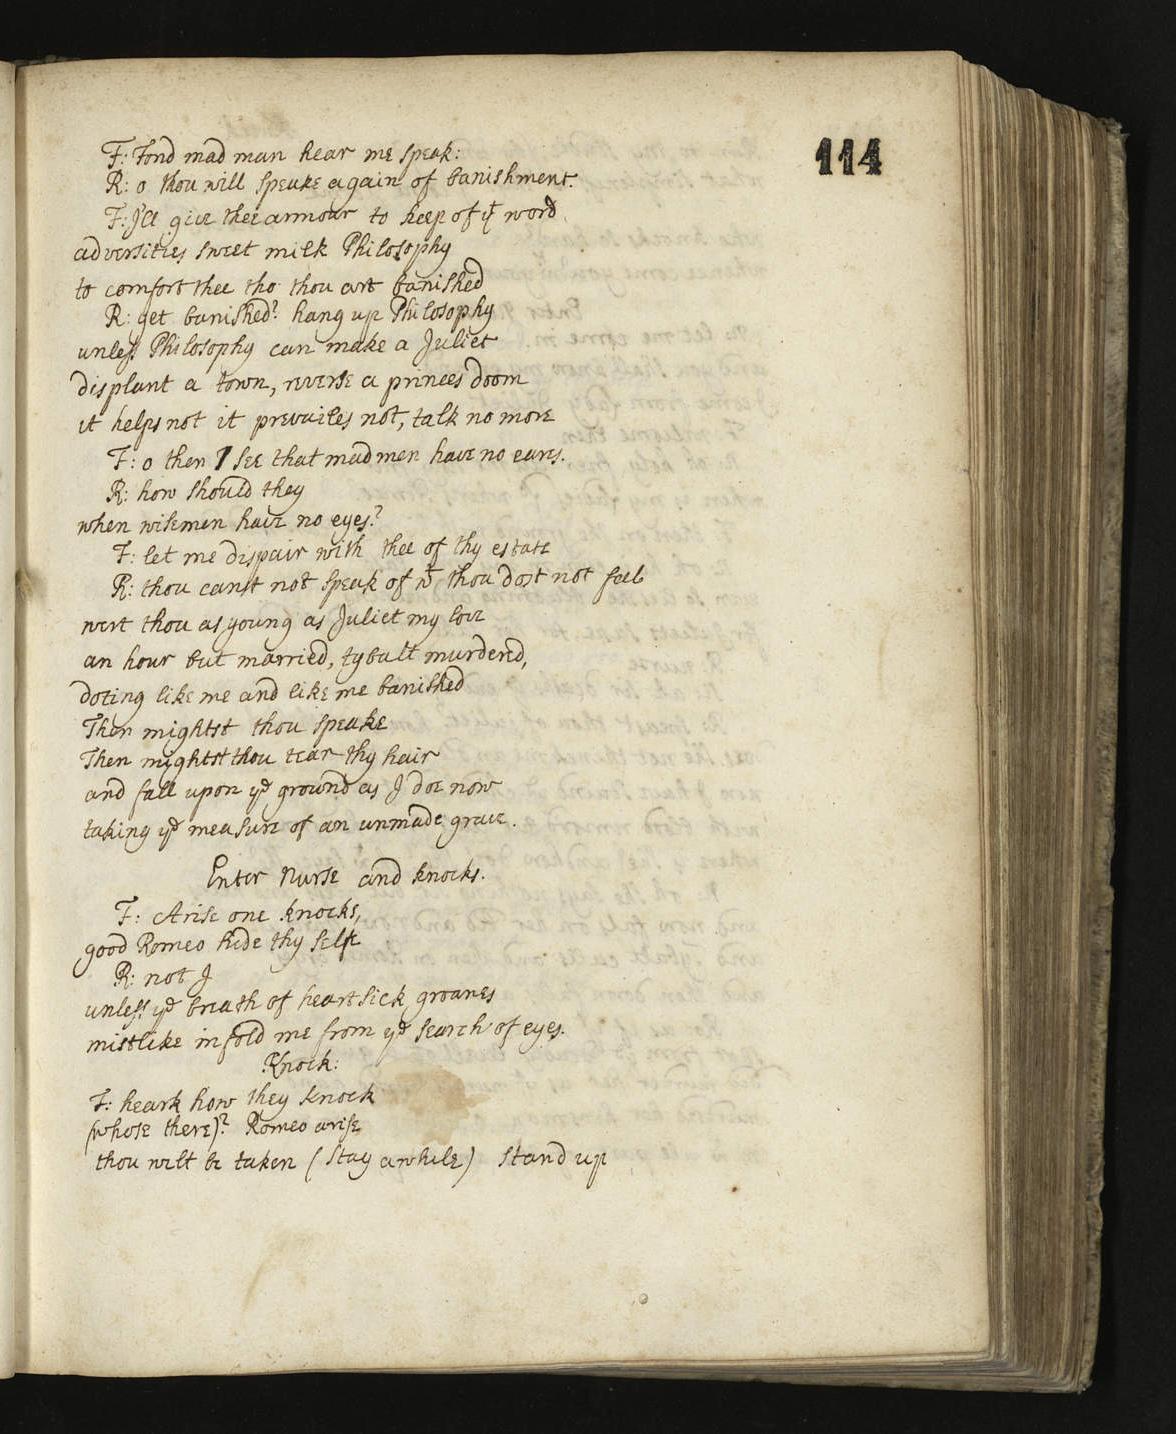 114
F: Fond mad man hear me speak:
R: o thou will speake again of banishment.
F: I'll give thee armour to keep of yt word
adversities sweet milk Philosophy
to comfort thee tho thou art banished
R: yet banished? hang up Philosophy
unless Philosophy can make a Juliet
displant a town, reverse a princes doom
it helps not it prevailes not, talk no more
F: o then I see that mad men have no eares.
R: how should they
when wisemen have no eyes?
F: let me dispair with thee of thy estate
R: thou canst not speak of wt thou dost not feel
wert thou as young as Juliet my love
an hour but married, tybalt murdered,
doting like me and like me banished
Then mightst thou speake
Then mightst thou tear thy hair
and fall upon ye ground as I doe now
taking ye measure of an unmade grave.
Enter Nurse and knocks.
F: Arise one knocks,
good Romeo hide thy selfe
R: not I
unless ye breath of heartsick groanes
mistlike infold me from ye search of eyes.
Knock:
F: heark how they knock
(whose there)? Romeo arise
thou wilt be taken (stay awhile) stand up